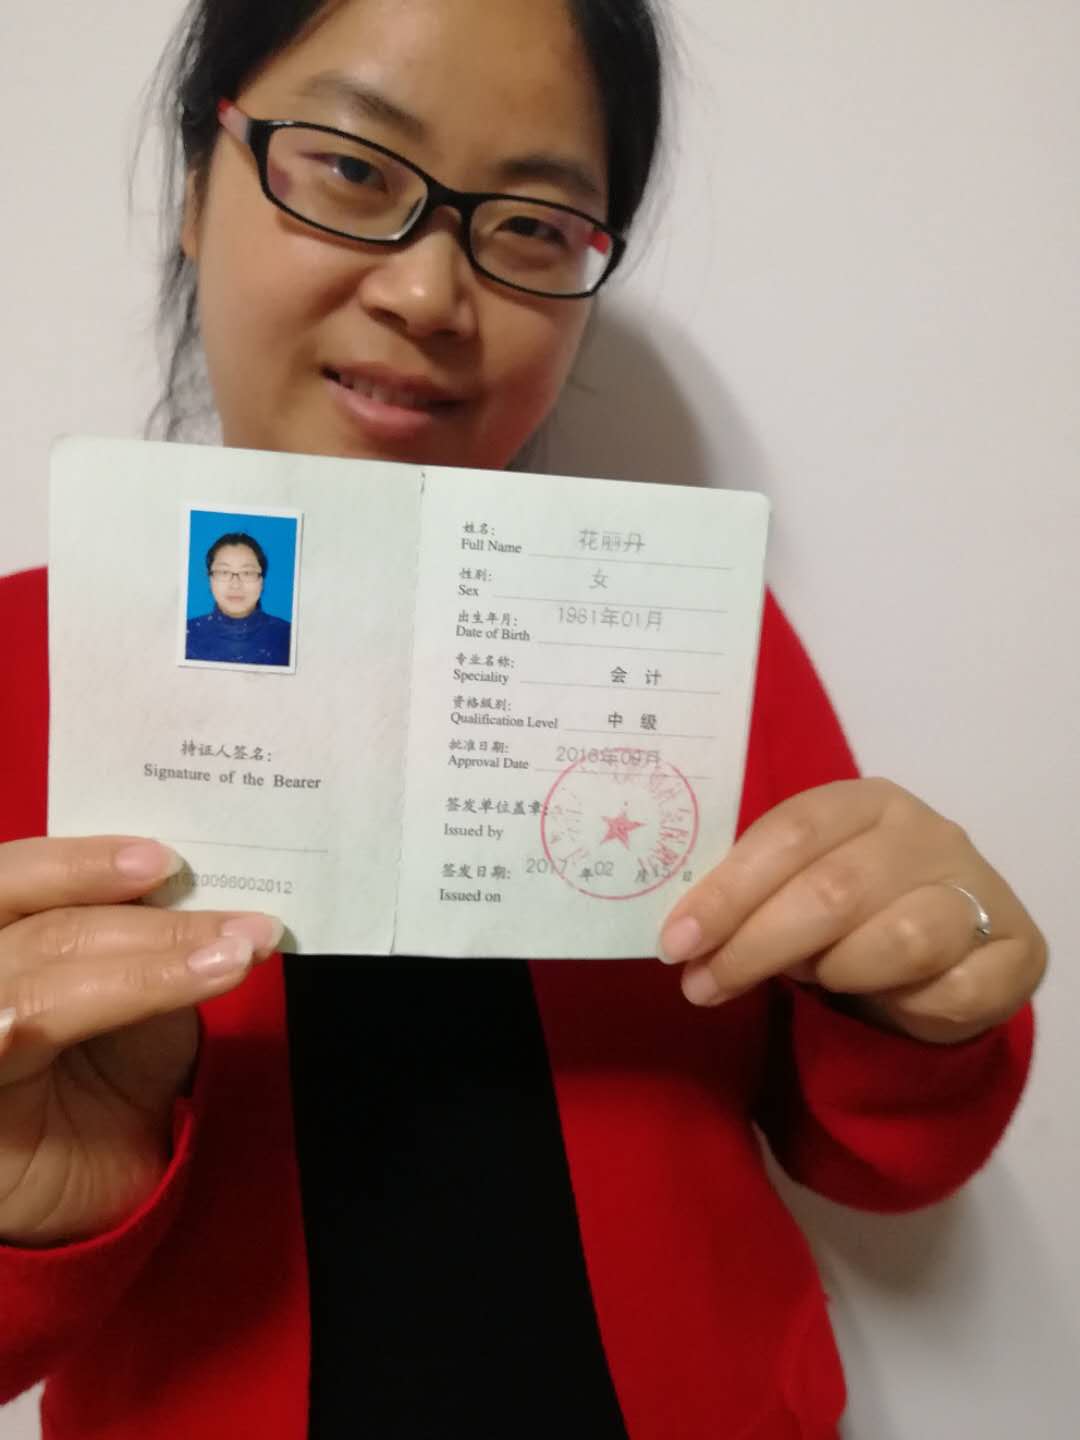 持证人签名:
Signature of the Bearer
姓名:
Full Name 花丽丹
性别:
Sex 女
出生年月:
Date of Birth 1981年01月
专业名称:
Speciality 会 计
资格级别:
Qualification Level 中 级
批准日期:
Approval Date 2016年09月
签发单位盖章:
Issued by
签发日期: 2017 年 02 月 15 日
Issued on